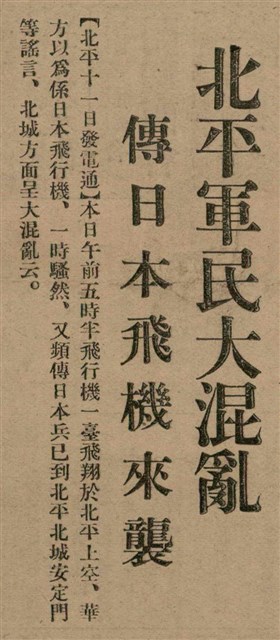 北平軍民大混亂
傳日本飛機來襲
【北平十一日發電通】本日午前五時半飛行機一臺飛翔於北平上空、華
方以爲係日本飛行機、一時騷然、又頻傳日本兵已到北平北城安定門
等謠言、北城方面呈大混亂云。